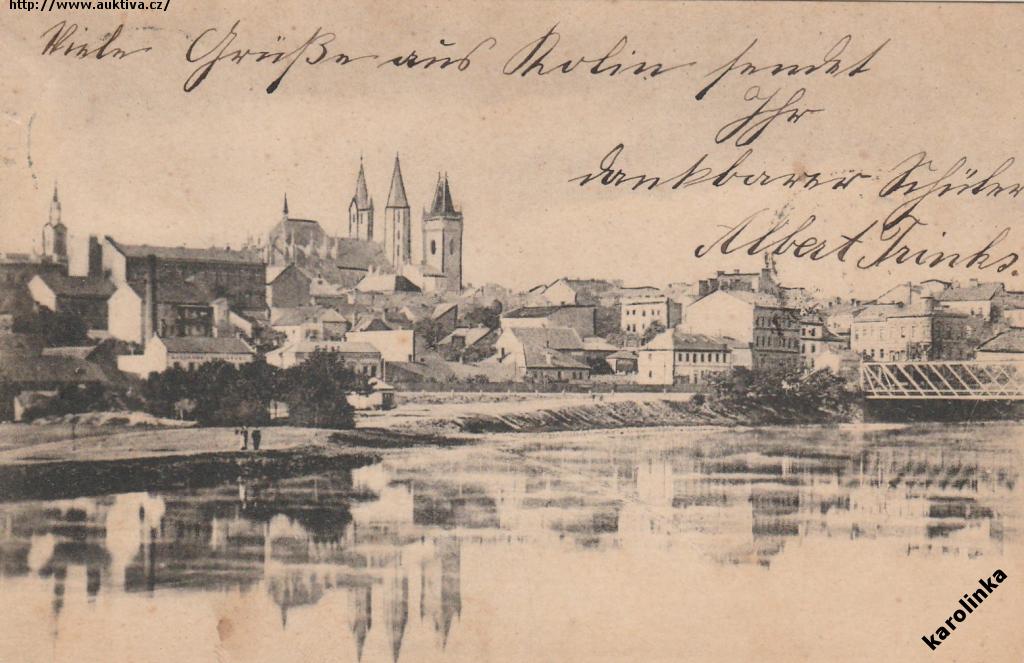 http://www.auktiva.cz/
Viele Grüße aus Kolin sendet
Ihr
dankbarer Schüler
Albert Trinks.
karolinka